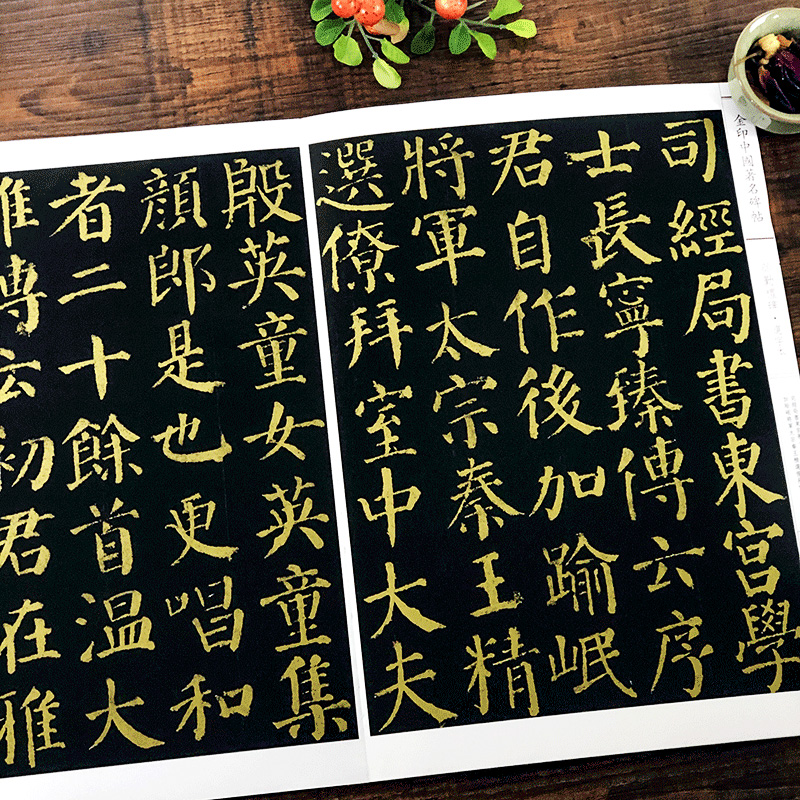 金印中國著名碑帖
司經局書東宮學
士長寧臻傳云序
君自作後加踰岷
將軍太宗秦王精
選僚拜室中大夫
殷英童女英童集
顔郎是也更唱和
者二十餘首溫大
雅傳云初君在雅